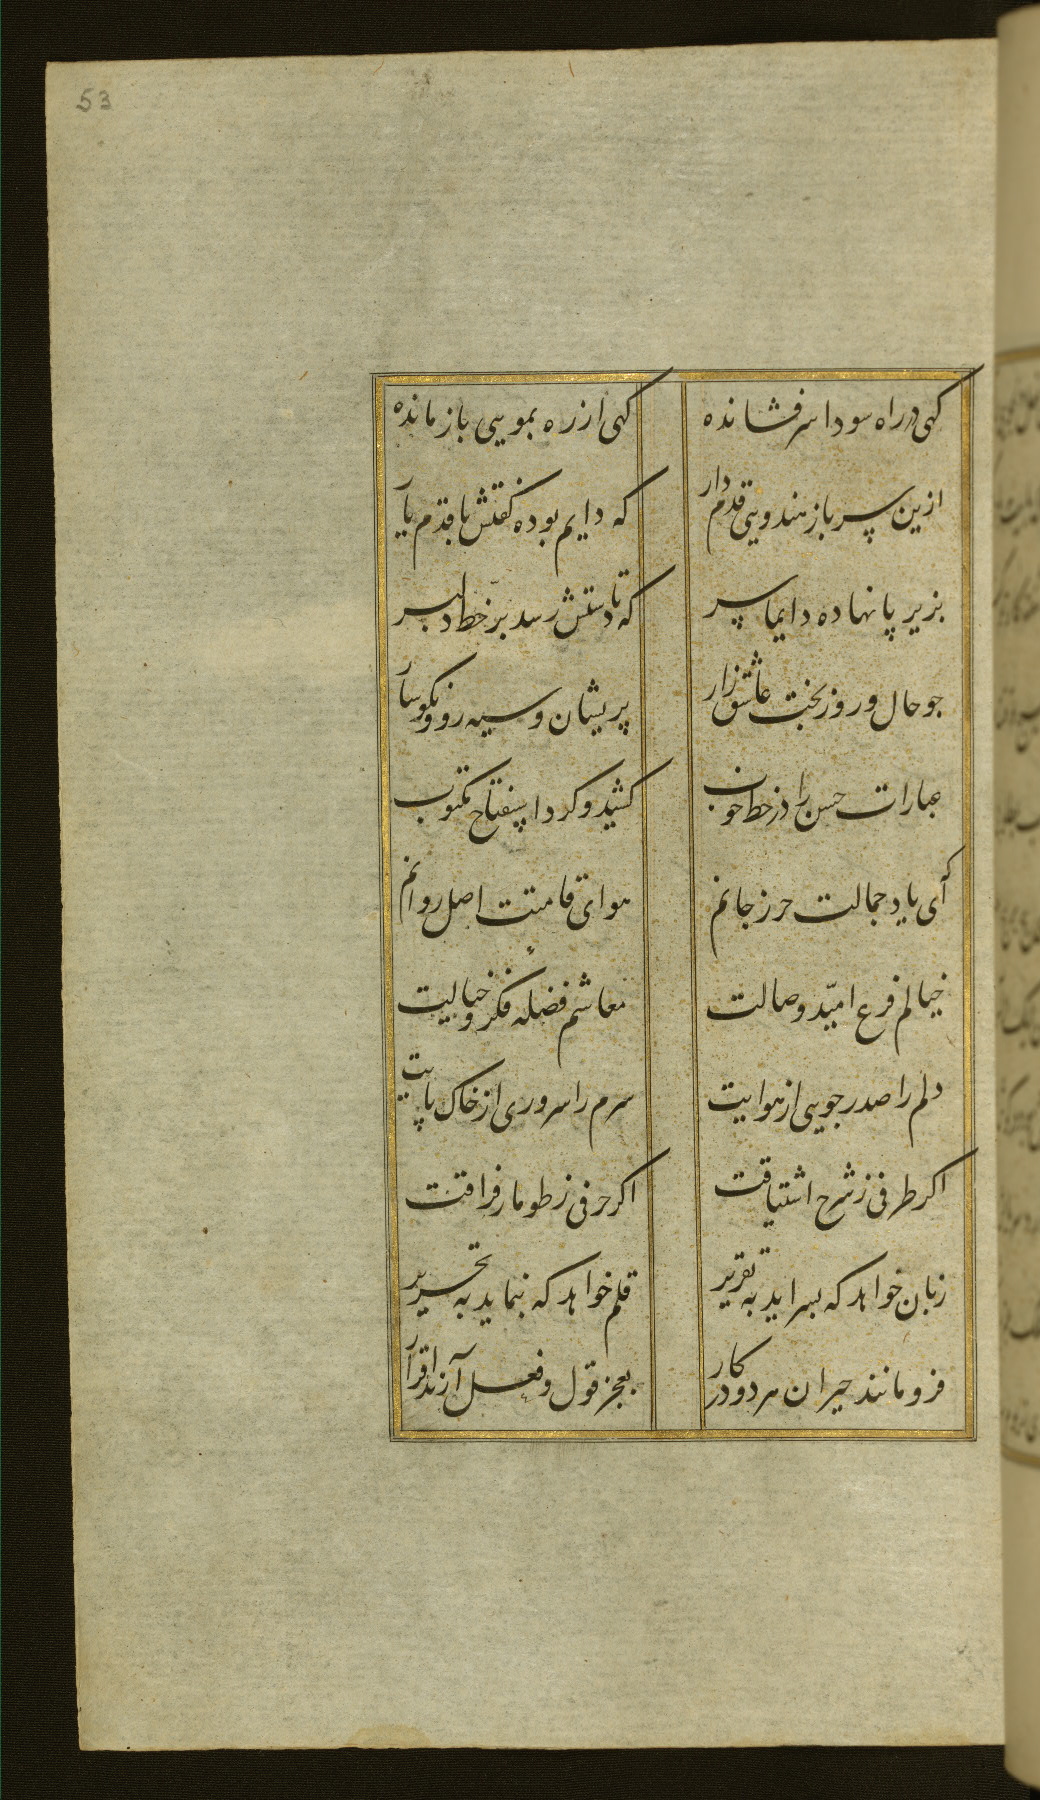 53
کهی در راه سودا سر فشانده کهی از ره بمویی باز مانده
ازین سر باز هندویی قدم دار که دایم بوده کفتش با قدم یار
بزیر پا نهاده دایما سر که تا دستش رسد بر خط دلبر
جو حال و روز بخت عاشق زار پریشان و سیه رو و نکوسار
عبارات حسن را در خط خوب کشید و کرد استفتاح مکتوب
که آی یاد جمالت حرز جانم هوای قامتت اصل روانم
خیالم فرع امید وصالت معاشم فضله فکر و خیالت
دلم را صدر جویی از هوایت سرم را سروری از خاک پایت
اکر طرفی ز شرح اشتیاقت اکر حرفی ز طومار فراقت
زبان خواهد که بسراید به تقریر قلم خواهد که بنماید به تحریر
فرو مانند حیران هر دو در کار بعجز قول و فعل آرند اقرار